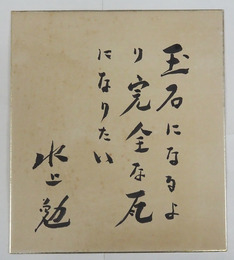 玉石になるよ
り完全な瓦
になりたい
水上勉